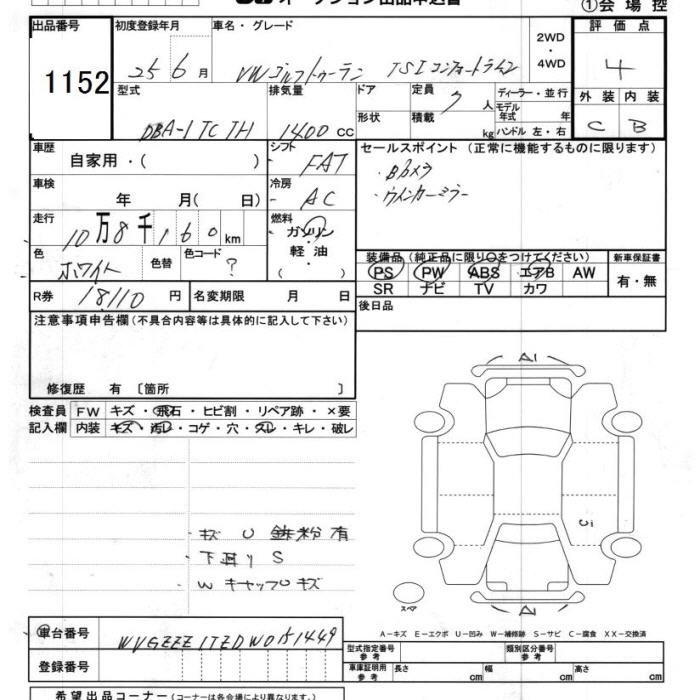 ①会場控
出品番号 初度登録年月 車名・グレード 2WD・4WD 評価点
1152 25 6 月 VWゴルフトゥーラン TSIコンフォートライン 4
型式 排気量 ドア 定員 7 人 ディーラー・並行 外装 内装
DBA-1TCTH 1400 CC 形状 積載 kg モデル年式 年 ハンドル 左・右 C B
車歴 自家用・( ) シフト FAT セールスポイント (正常に機能するものに限ります)
・Bカメラ
・ウインカーミラー
車検 年 月( 日) 冷房 AC
走行 10万8千160km 燃料 ガソリン・軽油・( )
色 ホワイト 色替 色コード ?
装備品(純正品に限り○をつけてください) 新車保証書
PS PW ABS エアB AW 有・無
SR ナビ TV カワ
R券 18110 円 名変期限 月 日 後日品
注意事項申告欄 (不具合内容等は具体的に記入して下さい)
修復歴 有 〔箇所 〕
検査員 FW キズ・飛石・ヒビ割・リペア跡・×要
記入欄 内装 キズ・汚レ・コゲ・穴・スレ・キレ・破レ
A1
・キズ U 鉄粉有
・下廻りS
・W キャップUキズ
スペア
A1
A−キズ E−エクボ U−凹み W−補修跡 S−サビ C−腐食 XX−交換済
車台番号 WVGZZZ1TZDW051449
型式指定番号 参考 類別区分番号 参考
登録番号 車庫証明用 参考 長さ cm 幅 cm 高さ cm
希望出品コーナー (コーナーは各会場により異なります。)